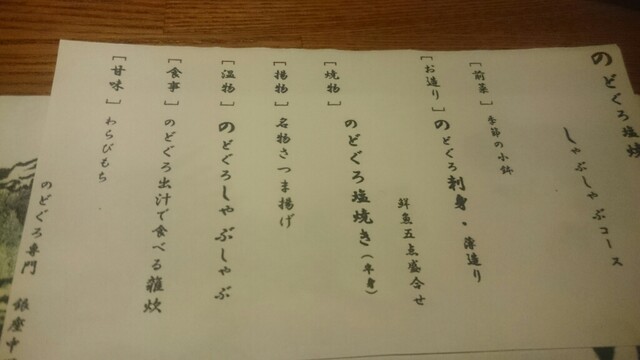 のどぐろ塩焼
しゃぶしゃぶコース
［前菜］季節の小鉢
［お造り］のどぐろ刺身・薄造り
鮮魚五点盛合せ
［焼物］のどぐろ塩焼き（半身）
［揚物］名物さつま揚げ
［温物］のどぐろしゃぶしゃぶ
［食事］のどぐろ出汁で食べる雑炊
［甘味］わらびもち
のどぐろ専門 銀座中